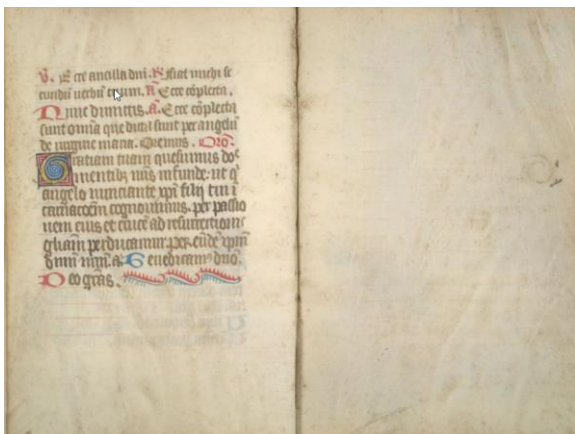 V. Ecce ancilla dñi. R. Fiat michi se
cundū uerbū tuum. A. Ecce cōplecta.
Nunc dimittis. A. Ecce cōplecta
sunt omīa que dicta sunt per angelū
de uirgine maria. Oremus. Oro.
Gratiam tuam quesumus do
mentibꝫ nr̄is infunde: ut q
angelo nunciante xp̄i filij tui i
carnacōem cognouimus. per passio
nem eius et crucē ad resurrectionis
gliam perducamur. per. eūdē xp̄m
dnm nrm. a. Benedicamꝰ dño.
Deo grās.